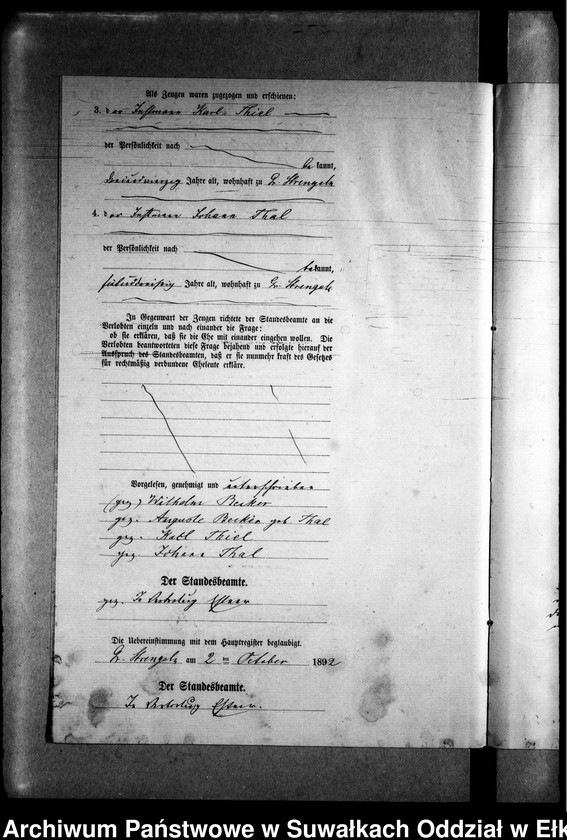 Als Zeugen waren zugezogen und erschienen:
3. der Instmann Karl Thiel
der Persönlichkeit nach
be kannt,
dreiundvierzig Jahre alt, wohnhaft zu Gr. Strengeln
4. der Instmann Johann Thal
der Persönlichkeit nach
bekannt,
Jahre alt, wohnhaft zu Gr. Strengeln
In Gegenwart der Zeugen richtete der Standesbeamte an die
Verlobten einzeln und nach einander die Frage:
ob sie erklären, daß sie die Ehe mit einander eingehen wollen. Die
Verlobten beantworteten diese Frage bejahend und erfolgte hierauf der
Ausspruch des Standesbeamten, daß er sie nunmehr kraft des Gesetzes
für rechtmäßig verbundene Eheleute erkläre.
Vorgelesen, genehmigt und unterschrieben
(gez.) Wilhelm Becker
gez. Auguste Becker geb Thal
gez. Karl Thiel
gez. Johann Thal
Der Standesbeamte.
gez. In Vertretung
Die Uebereinstimmung mit dem Hauptregister beglaubigt.
Gr. Strengeln am 2 ten October 1892
Der Standesbeamte.
In Vertretung
Archiwum Państwowe w Suwałkach Oddział w Ełk